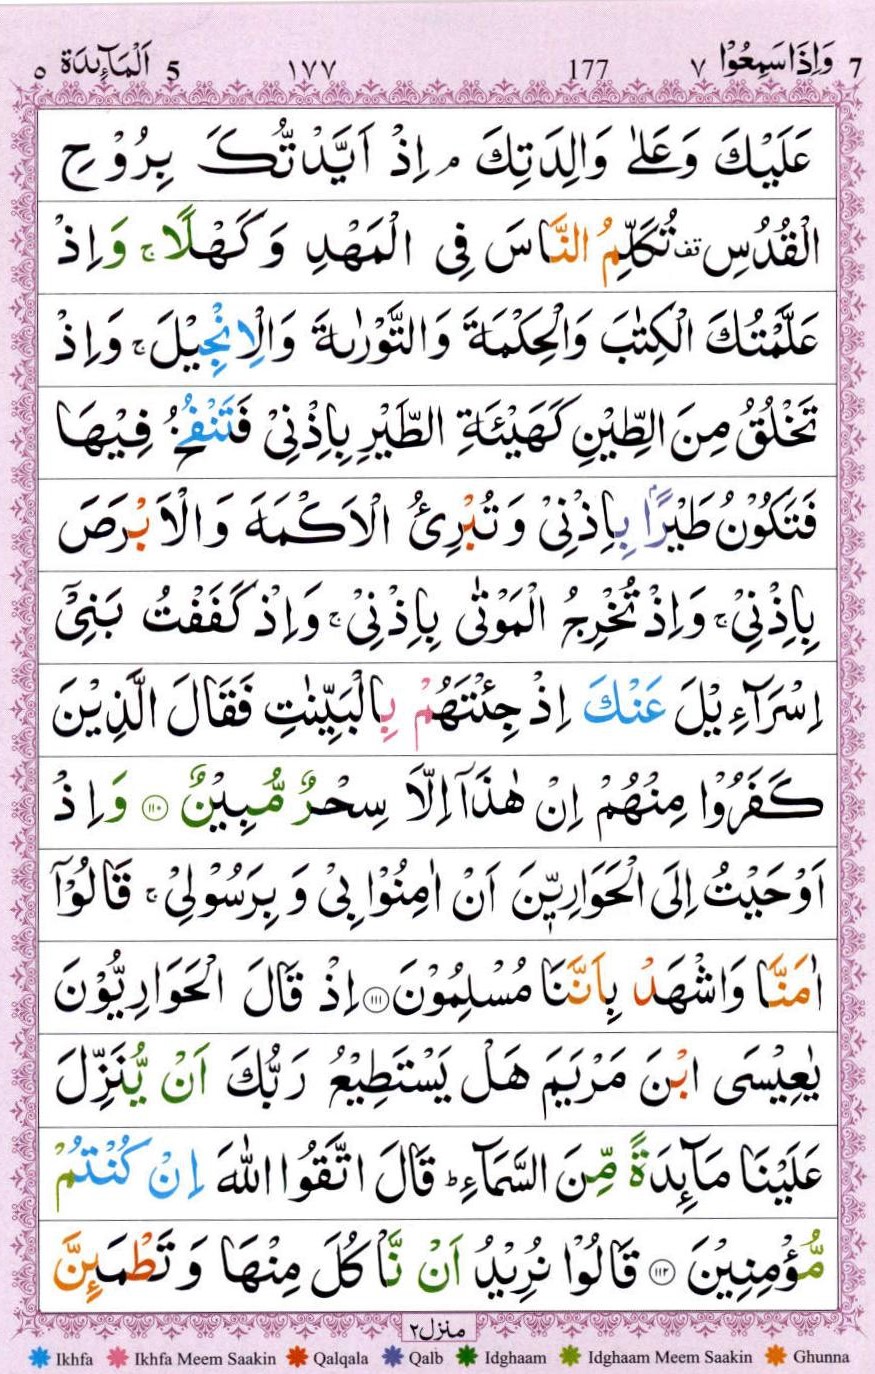 7 وَاِذَا سَمِعُوْا ٧ 177 ١٧٧ 5 اَلْمَآىِٕدَة ٥
عَلَيْكَ وَعَلٰى وَالِدَتِكَ ۘ اِذْ اَيَّدْتُّكَ بِرُوْحِ
الْقُدُسِ تف تُكَلِّمُ النَّاسَ فِى الْمَهْدِ وَكَهْلًا ۚ وَاِذْ
عَلَّمْتُكَ الْكِتٰبَ وَالْحِكْمَةَ وَالتَّوْرٰىةَ وَالْاِنْجِيْلَ ۚ وَاِذْ
تَخْلُقُ مِنَ الطِّيْنِ كَهَيْئَةِ الطَّيْرِ بِاِذْنِيْ فَتَنْفُخُ فِيْهَا
فَتَكُوْنُ طَيْرًاۢ بِاِذْنِيْ وَتُبْرِئُ الْاَكْمَهَ وَالْاَبْرَصَ
بِاِذْنِيْ ۚ وَاِذْ تُخْرِجُ الْمَوْتٰى بِاِذْنِيْ ۚ وَاِذْ كَفَفْتُ بَنِيْٓ
اِسْرَآءِيْلَ عَنْكَ اِذْ جِئْتَهُمْ بِالْبَيِّنٰتِ فَقَالَ الَّذِيْنَ
كَفَرُوْا مِنْهُمْ اِنْ هٰذَآ اِلَّا سِحْرٌ مُّبِيْنٌ ١١٠ وَاِذْ
اَوْحَيْتُ اِلَى الْحَوَارِيّٖنَ اَنْ اٰمِنُوْا بِيْ وَبِرَسُوْلِيْ ۚ قَالُوْٓا
اٰمَنَّا وَاشْهَدْ بِاَنَّنَا مُسْلِمُوْنَ ١١١ اِذْ قَالَ الْحَوَارِيُّوْنَ
يٰعِيْسَى ابْنَ مَرْيَمَ هَلْ يَسْتَطِيْعُ رَبُّكَ اَنْ يُّنَزِّلَ
عَلَيْنَا مَآىِٕدَةً مِّنَ السَّمَآءِ ؕ قَالَ اتَّقُوا اللّٰهَ اِنْ كُنْتُمْ
مُّؤْمِنِيْنَ ١١٢ قَالُوْا نُرِيْدُ اَنْ نَّاْكُلَ مِنْهَا وَتَطْمَىِٕنَّ
منزل ٢
Ikhfa Ikhfa Meem Saakin Qalqala Qalb Idghaam Idghaam Meem Saakin Ghunna